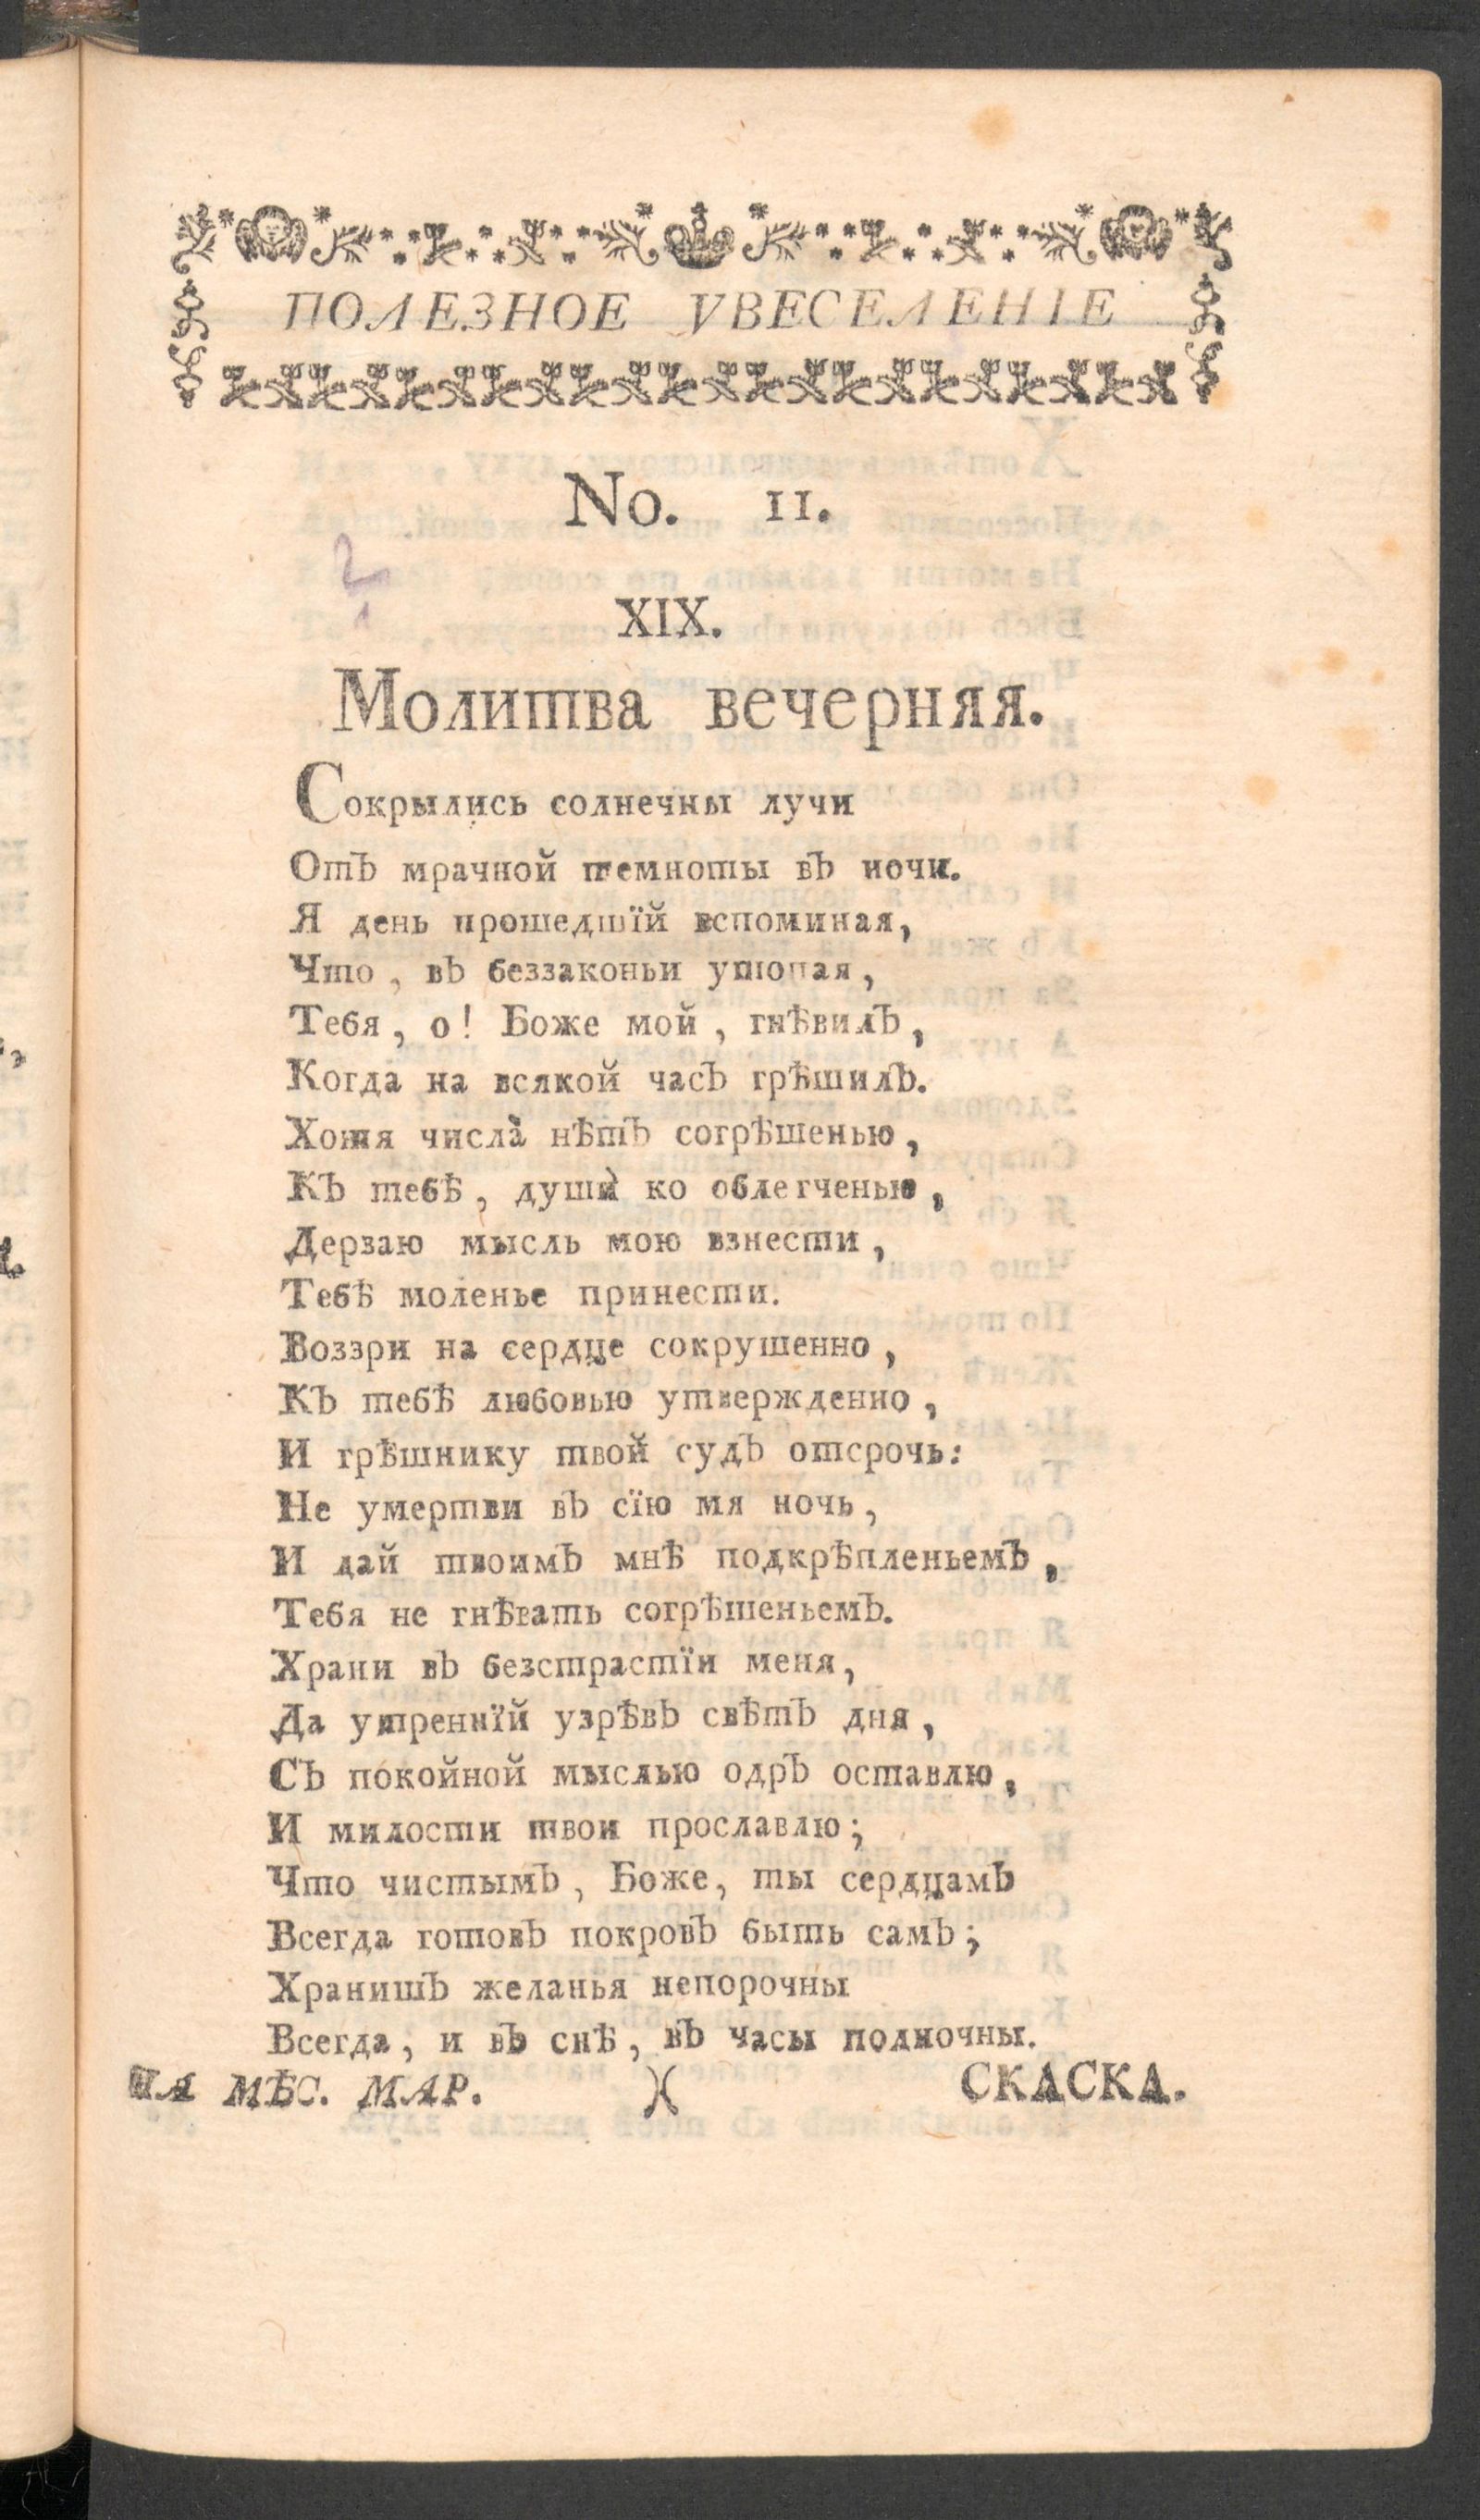 ПОЛЕЗНОЕ УВЕСЕЛЕНІЕ
No. 11.
XIX.
Молитва вечерняя.
Сокрылись солнечны лучи
Отъ мрачной темноты въ ночи.
Я день прошедшїй вспоминая,
Что, въ беззаконьи утопая,
Тебя, о! Боже мой, гнѣвилъ,
Когда на всякой часъ грѣшилъ.
Хотя числа̀ нѣтъ согрѣшенью,
Къ тебѣ, души̇̀ ко облегченью,
Дерзаю мысль мою взнести,
Тебѣ моленье принести.
Воззри на сердце сокрушенно,
Къ тебѣ любовью утвержденно,
И грѣшнику твой судъ отсрочь:
Не умертви въ сїю мя ночь,
И дай твоимъ мнѣ подкрѣпленьемъ,
Тебя не гнѣвать согрѣшеньемъ.
Храни въ безстрастїи меня,
Да утреннїй узрѣвъ свѣтъ дня,
Съ покойной мыслью одръ оставлю,
И милости твои прославлю;
Что чистымъ, Боже, ты сердцамъ
Всегда готовъ покровъ быть самъ;
Хранишъ желанья непорочны
Всегда, и въ снѣ, въ часы полночны.
НА МѢС. МАР. )( СКАСКА.